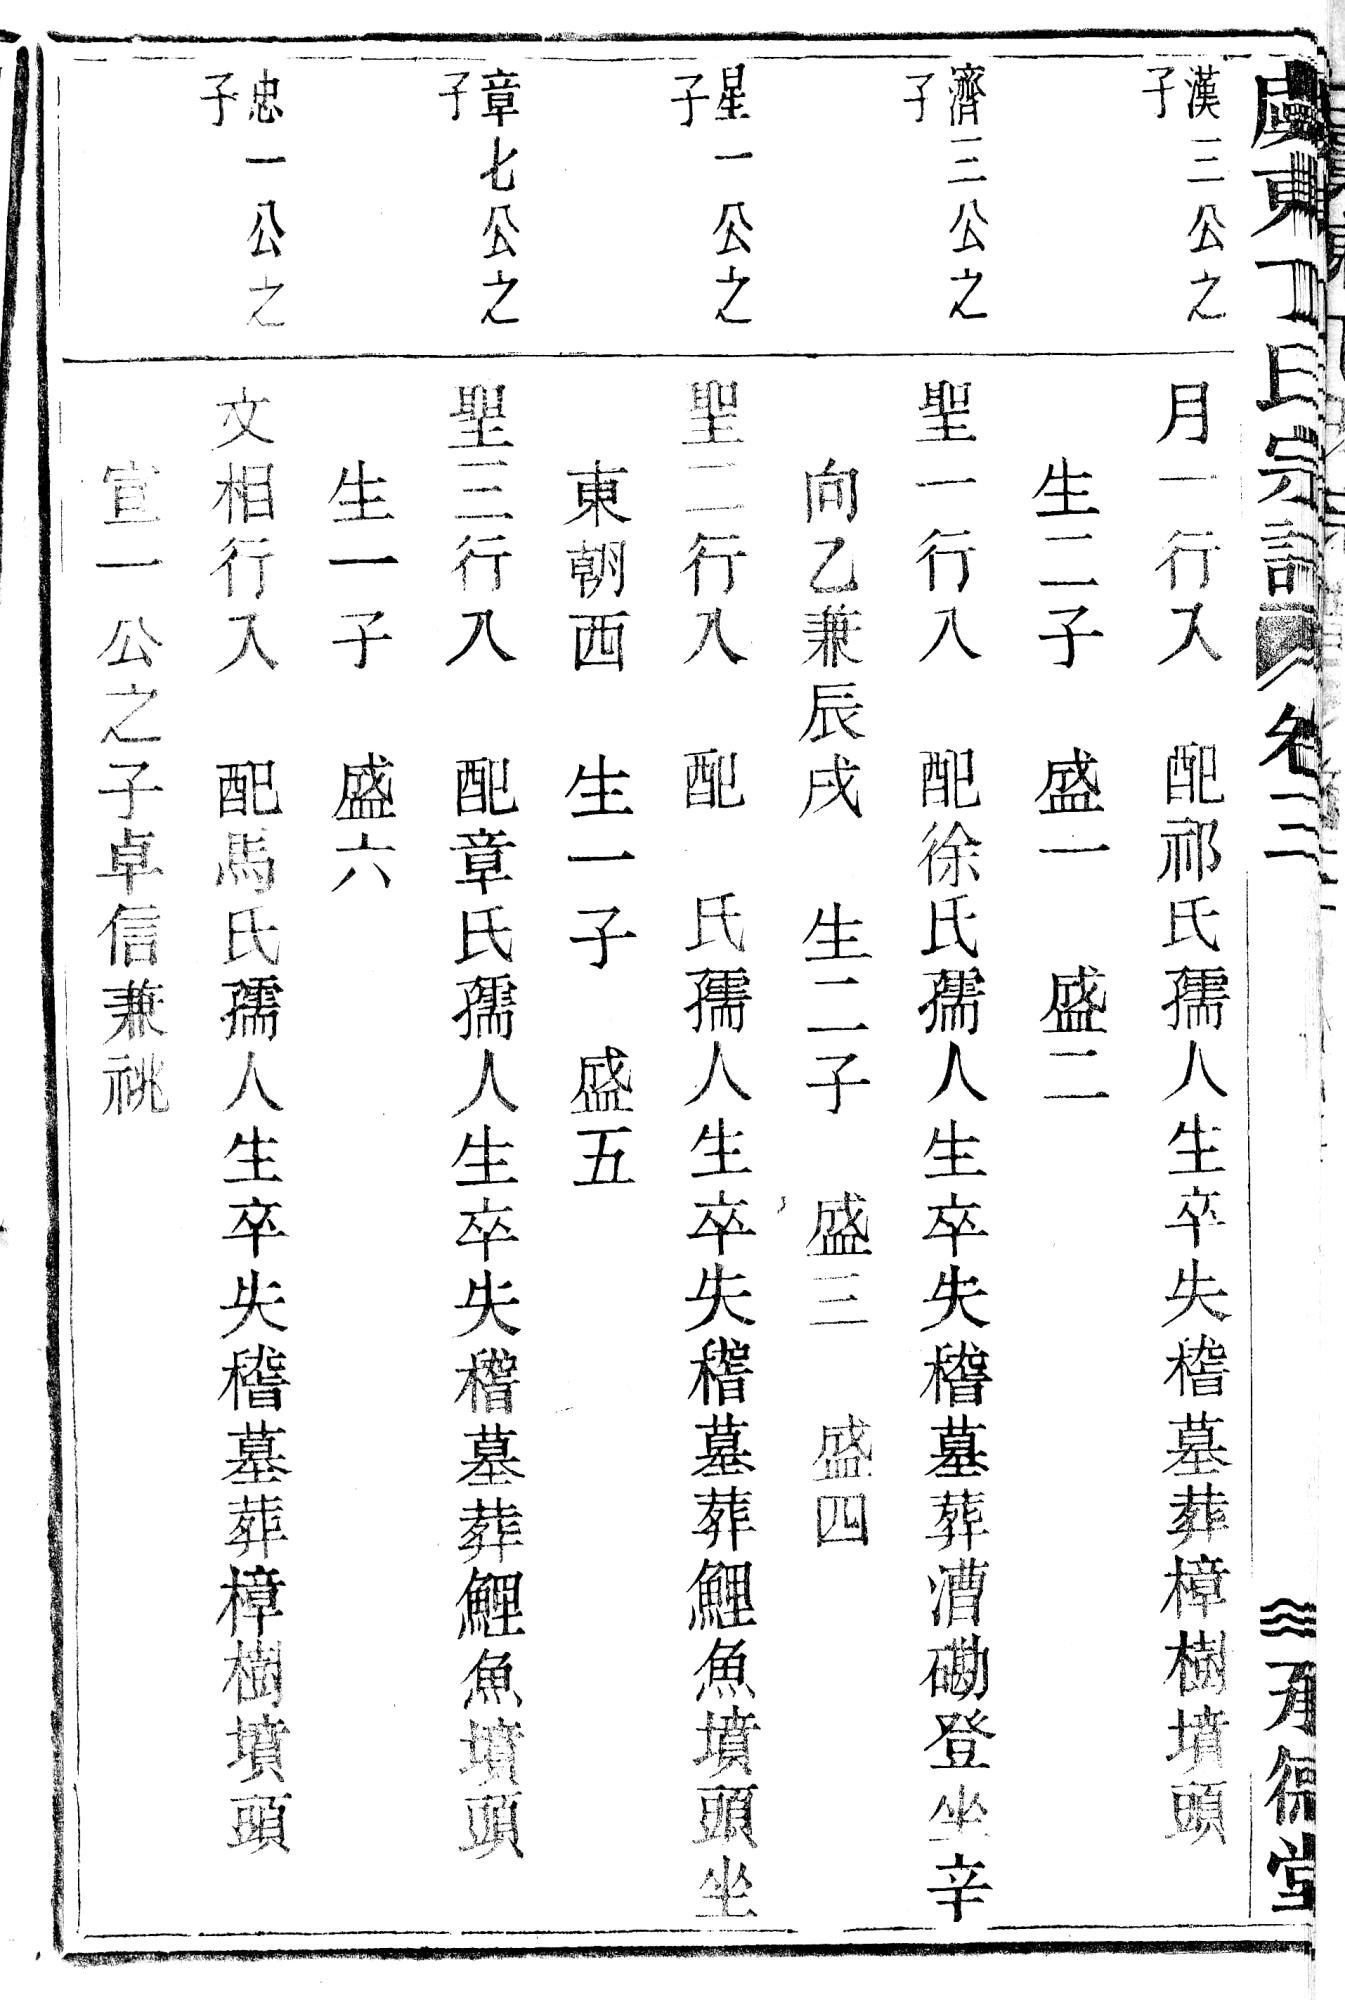 虞東丁氏宗譜 卷三 承德堂
漢三公之
子
月一行入　配祁氏孺人生卒失稽墓葬樟樹墳頭
生二子　盛一　盛二
濟三公之
子
聖一行入　配徐氏孺人生卒失稽墓葬漕磡登坐辛
向乙兼辰戌　生二子　盛三　盛四
星一公之
子
聖二行入　配　氏孺人生卒失稽墓葬鯉魚墳頭坐
東朝西　生一子　盛五
章七公之
子
聖三行入　配章氏孺人生卒失稽墓葬鯉魚墳頭
生一子　盛六
忠一公之
子
文相行入　配馬氏孺人生卒失稽墓葬樟樹墳頭
宣一公之子卓信兼祧